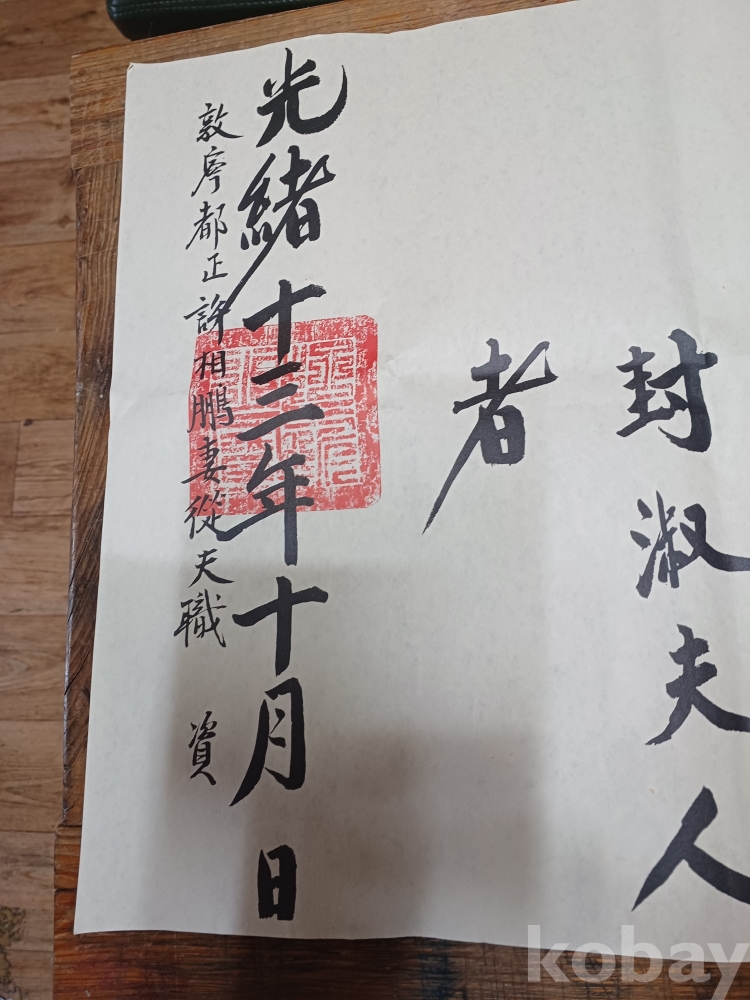 封淑夫人
者
光緒十三年十月 日
敦寧都正許相鵬妻從夫職 資
kobay